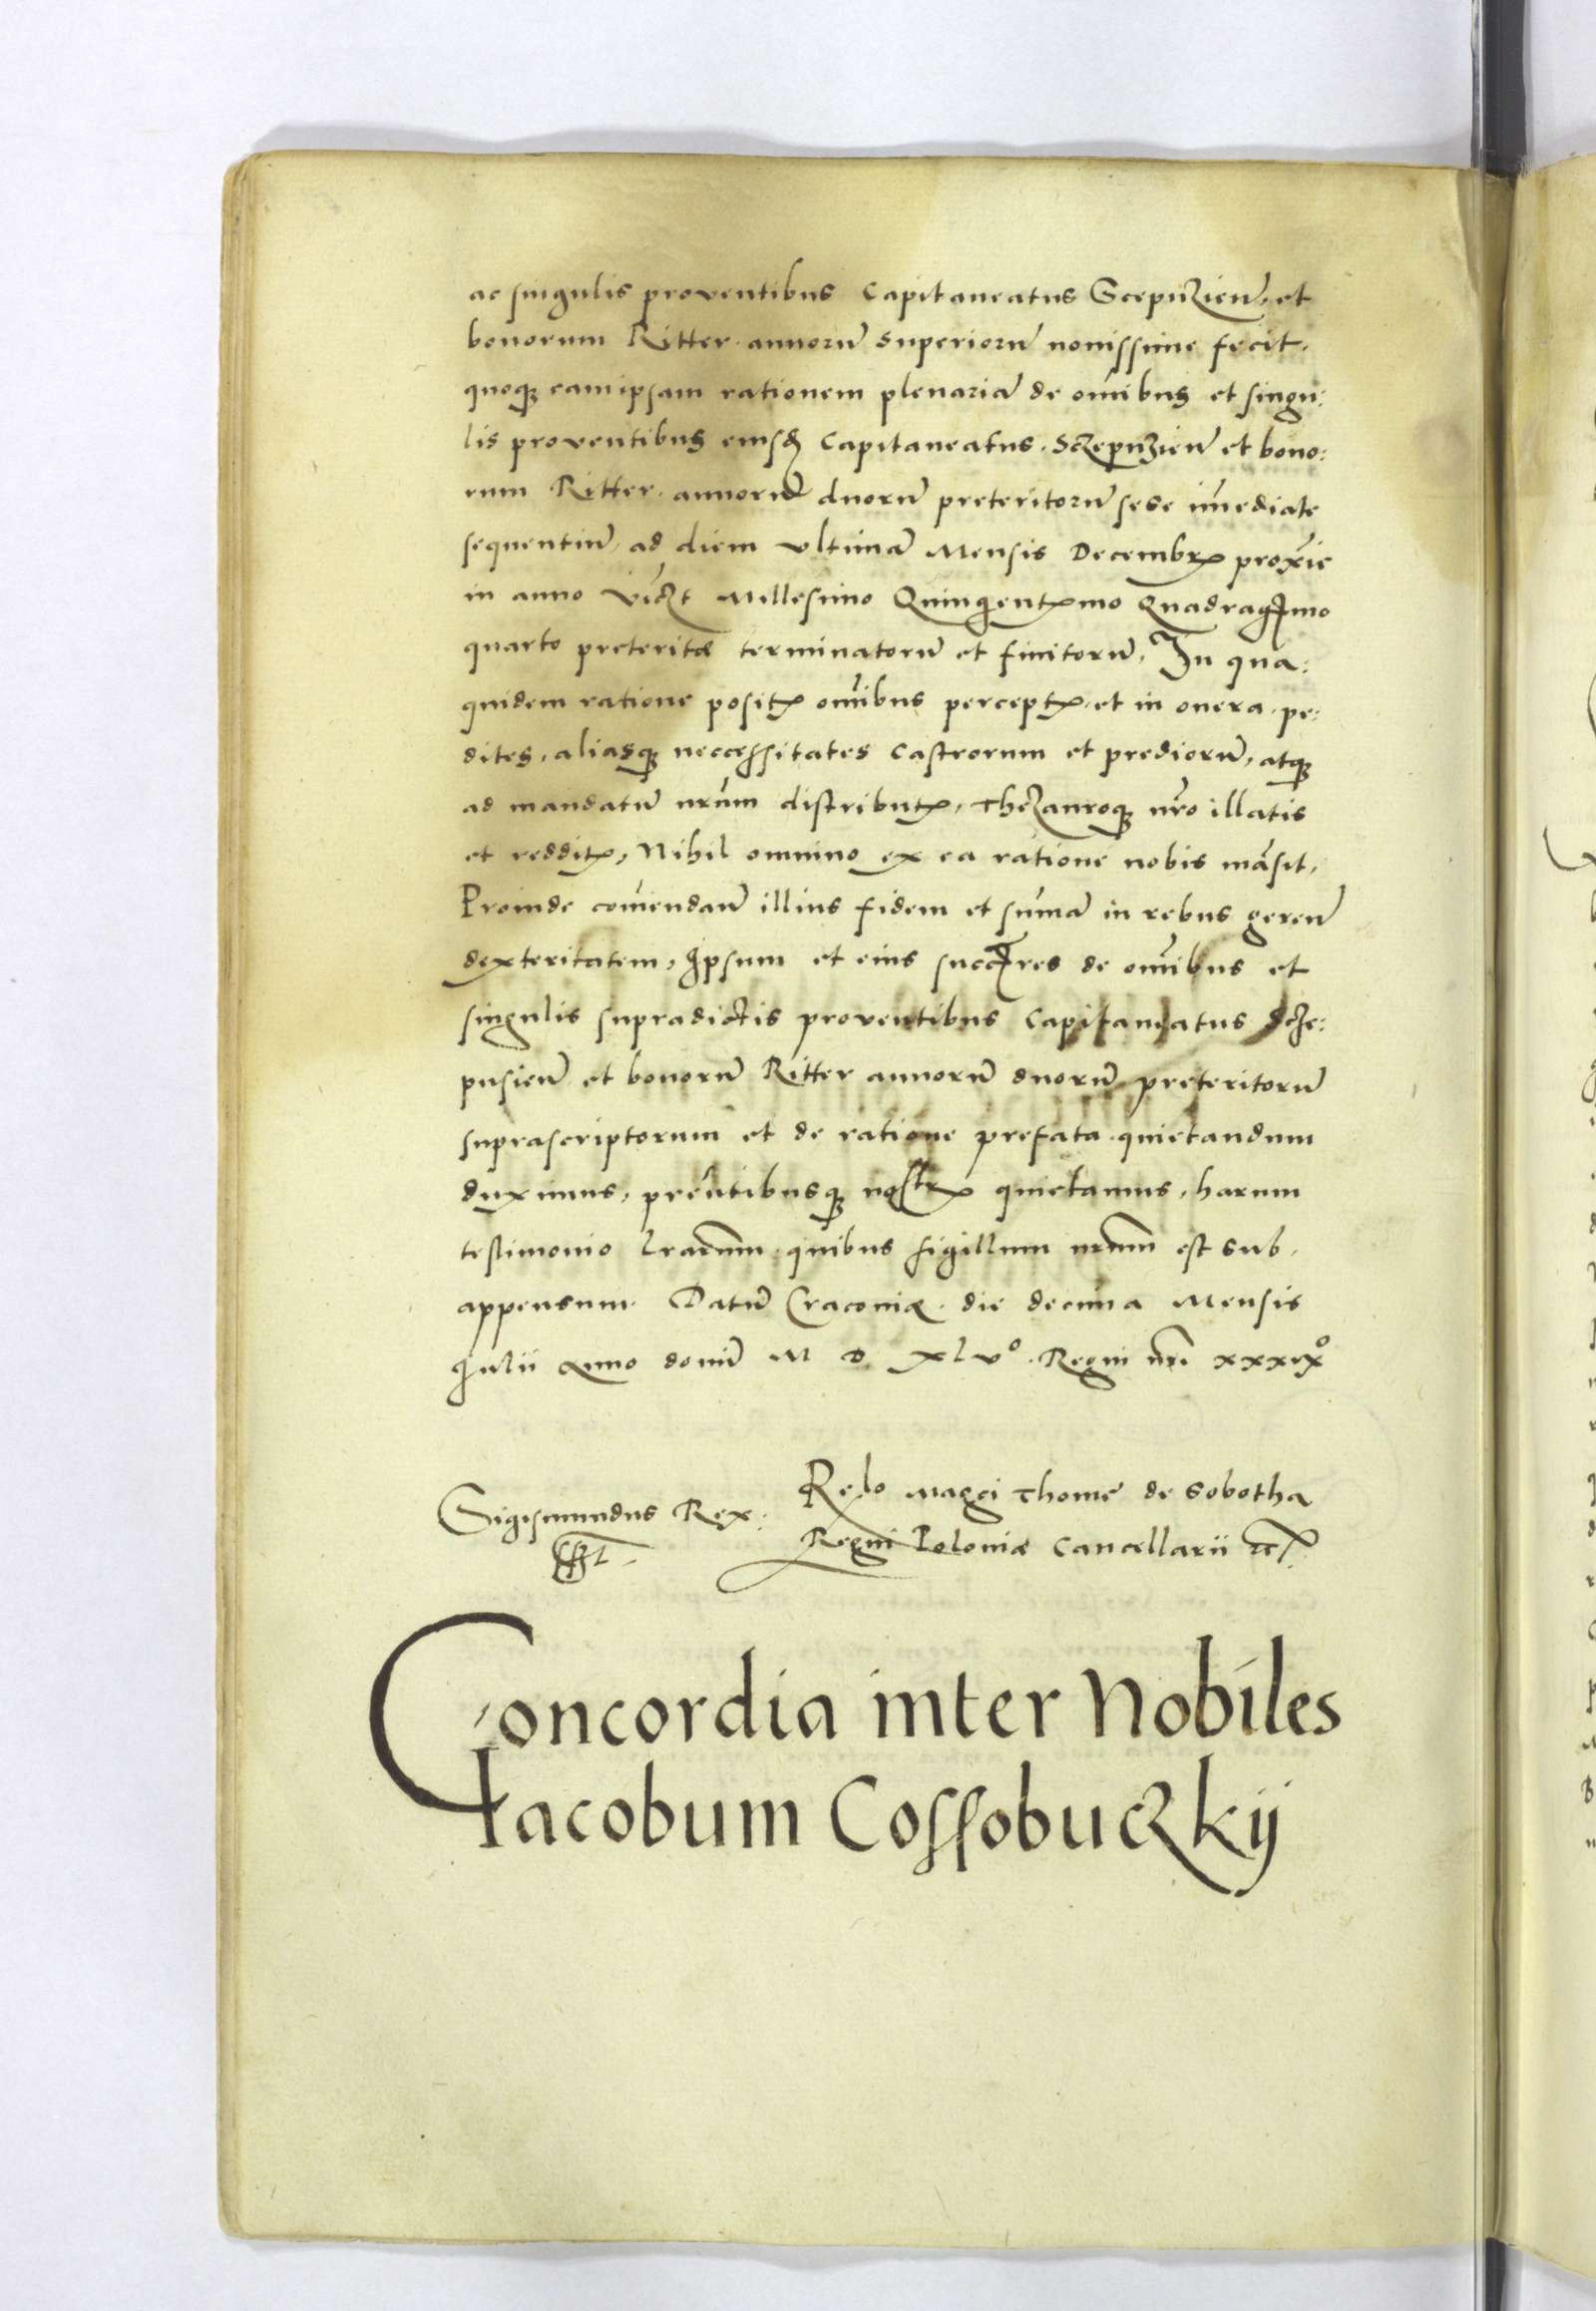 ac singulis proventibus Capitaneatus Scepuzień. et
bonorum Ritter. annorū superiorū novissime fecit.
quoqꝫ eam ipsam rationem plenariā de oṁibus et singu:
lis proventibus eiusd̄ Capitaneatus. Sczepuzień et bono:
rum Ritter. annorū duorū preteritorū sese im̄ediate
sequentiū, ad diem ultimā Mensis Decembrꝭ prox̄ie
in anno vicꝫt Millesimo Quingentꝭmo Quadragꝭmo
quarto preterita terminatorū et finitorū, In qua:
quidem ratione positꝭ om̄ibus perceptꝭ. et in onera. pe:
dites, aliasqꝫ neccessitates Castrorum et prediorū, atqꝫ
ad mandatū nr̄um distributꝭ, Thezauroqꝫ nr̄o illatis
et redditꝭ, Nihil omnino ex ea ratione nobis māsit,
Proinde com̄endań illius fidem et sum̄ā in rebus gereń
dexteritatem, Ipsum et eius succꝭres de om̄ibus et
singulis supradictis proventibus Capitaneatus Scze:
pusień et bonorū Ritter annorū duorū preteritorū
suprascriptorum et de ratione prefata quietandum
duximus, prēntibusqꝫ nostrꝭ quietamus, harum
testimonio lr̄arum quibus sigillum nr̄um est sub.
appensum. Datū Cracoviæ. die decima Mensis
Iulii Anno domī M D xlvº. Regni nr̄i xxxixº
Sigismundus Rex:
Relo Magci Thome de Sobotha
Regni Poloniæ Cancellarii ꝛcꝭ.
Concordia inter Nobiles
Iacobum Cossobuczkij